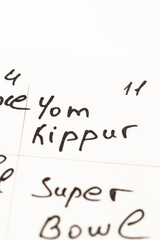 4
11
Yom
Kippur
Super
Bowl